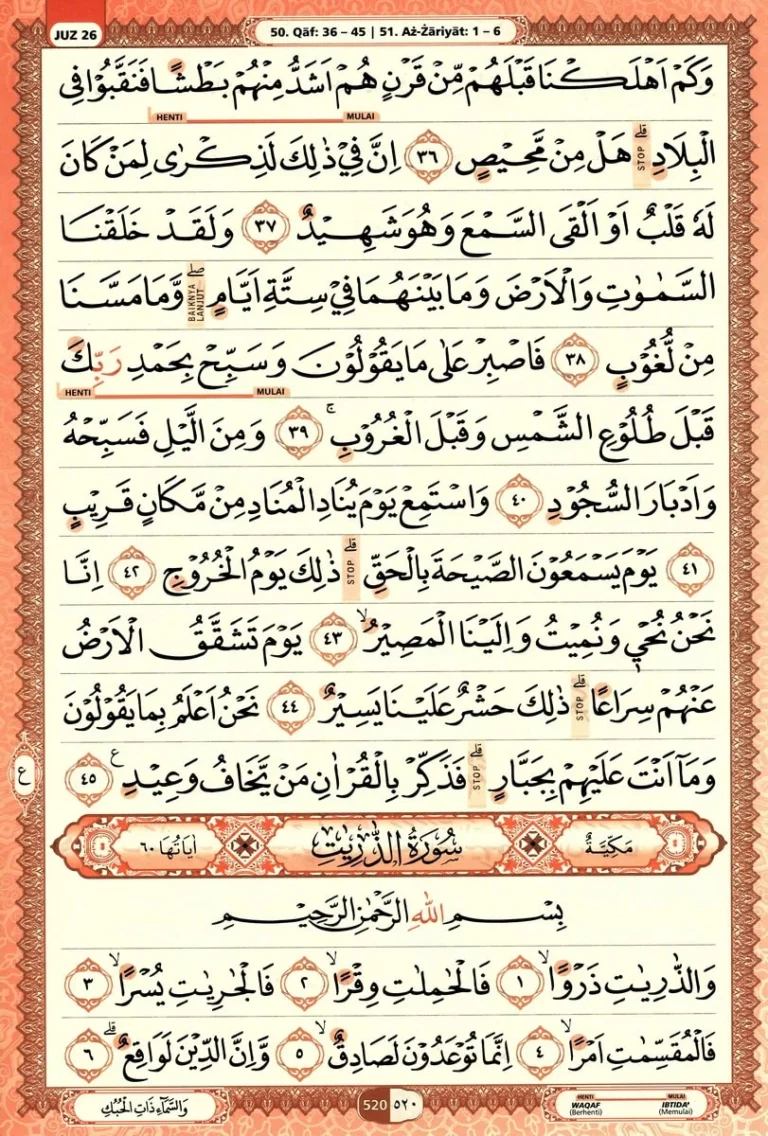 JUZ 26
50. Qāf: 36 – 45 | 51. Aż-Żāriyāt: 1 – 6
وَكَمْ اَهْلَكْنَا قَبْلَهُمْ مِّنْ قَرْنٍ هُمْ اَشَدُّ مِنْهُمْ بَطْشًا فَنَقَّبُوْا فِى
HENTI MULAI
الْبِلَادِ ۗ STOP هَلْ مِنْ مَّحِيْصٍ ٣٦ اِنَّ فِيْ ذٰلِكَ لَذِكْرٰى لِمَنْ كَانَ
لَهٗ قَلْبٌ اَوْ اَلْقَى السَّمْعَ وَهُوَ شَهِيْدٌ ٣٧ وَلَقَدْ خَلَقْنَا
السَّمٰوٰتِ وَالْاَرْضَ وَمَا بَيْنَهُمَا فِيْ سِتَّةِ اَيَّامٍ ۖ BAIKNYA LANJUT وَّمَا مَسَّنَا
مِنْ لُّغُوْبٍ ٣٨ فَاصْبِرْ عَلٰى مَا يَقُوْلُوْنَ وَسَبِّحْ بِحَمْدِ رَبِّكَ
HENTI MULAI
قَبْلَ طُلُوْعِ الشَّمْسِ وَقَبْلَ الْغُرُوْبِ ۚ ٣٩ وَمِنَ الَّيْلِ فَسَبِّحْهُ
وَاَدْبَارَ السُّجُوْدِ ٤٠ وَاسْتَمِعْ يَوْمَ يُنَادِ الْمُنَادِ مِنْ مَّكَانٍ قَرِيْبٍ
٤١ يَوْمَ يَسْمَعُوْنَ الصَّيْحَةَ بِالْحَقِّ ۗ STOP ذٰلِكَ يَوْمُ الْخُرُوْجِ ٤٢ اِنَّا
نَحْنُ نُحْيٖ وَنُمِيْتُ وَاِلَيْنَا الْمَصِيْرُ ۙ ٤٣ يَوْمَ تَشَقَّقُ الْاَرْضُ
عَنْهُمْ سِرَاعًا ۗ STOP ذٰلِكَ حَشْرٌ عَلَيْنَا يَسِيْرٌ ٤٤ نَحْنُ اَعْلَمُ بِمَا يَقُوْلُوْنَ
وَمَآ اَنْتَ عَلَيْهِمْ بِجَبَّارٍ ۗ STOP فَذَكِّرْ بِالْقُرْاٰنِ مَنْ يَّخَافُ وَعِيْدِ ع ٤٥
ع
مَكِّيَّةٌ سُوْرَةُ الذّٰرِيٰتِ اٰيَاتُهَا ٦٠
بِسْمِ اللّٰهِ الرَّحْمٰنِ الرَّحِيْمِ
وَالذّٰرِيٰتِ ذَرْوًا ۙ ١ فَالْحٰمِلٰتِ وِقْرًا ۙ ٢ فَالْجٰرِيٰتِ يُسْرًا ۙ ٣
فَالْمُقَسِّمٰتِ اَمْرًا ۙ ٤ اِنَّمَا تُوْعَدُوْنَ لَصَادِقٌ ۙ ٥ وَّاِنَّ الدِّيْنَ لَوَاقِعٌ ۗ ٦
وَالسَّمَاۤءِ ذَاتِ الْحُبُكِ
520 ٥٢٠
HENTI MULAI
WAQAF IBTIDA'
(Berhenti) (Memulai)